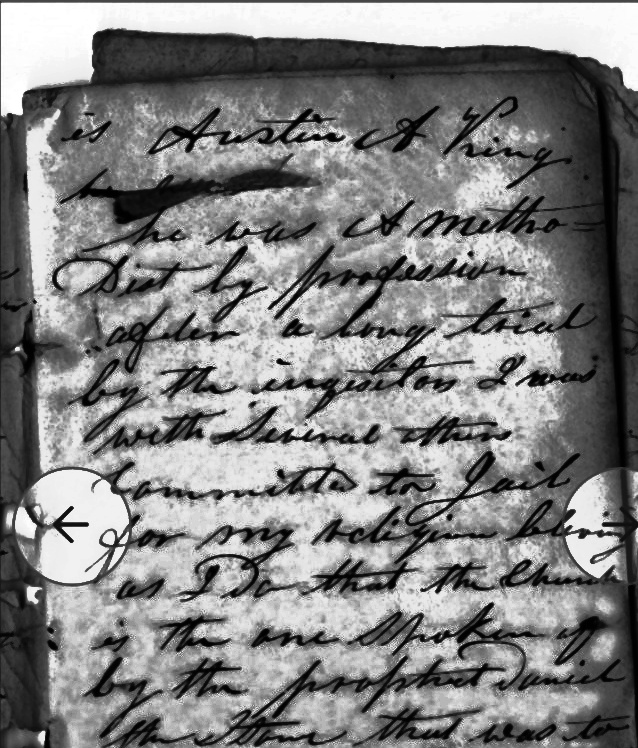 is Austin A King
he
he was A metho=
Dist by profession
after a long trial
by the inquisitors I was
with Several others
Committed to Jail
for my religion beleving
as I Do that the Church
is the one Spoken of
by the prophet Daniel
the Stone that was to